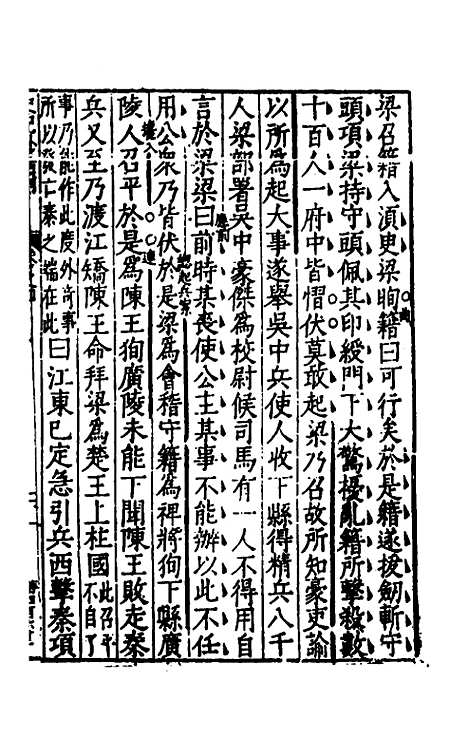 梁召籍入湏臾梁眴籍曰可行矣於是籍遂拔劒斬守
頭項梁持守頭佩其印綬門下大驚擾亂籍所擊殺數
十百人一府中皆慴伏莫敢起梁乃召故所知豪吏諭
以所爲起大事遂舉吳中兵使人收下縣得精兵八千
人梁部署吳中豪傑爲校尉候司馬有一人不得用自
言於梁梁曰前時某喪使公主某事不能辦以此不任
用公衆乃皆伏於是梁爲會稽守籍爲裨將徇下縣廣
陵人召平於是爲陳王徇廣陵未能下聞陳王敗走秦
兵又至乃渡江矯陳王命拜梁爲楚王上柱國此召平不自了
事乃能作此度外奇事所以發亡秦之端在此曰江東已定急引兵西擊秦項
應前
總起兵案